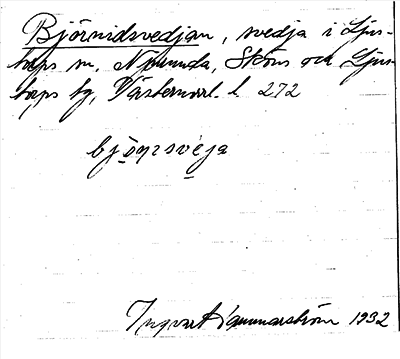 Björnidsvedjan, svedja i Ljus-
torps sn, Njurunda, Sköns och Ljus-
torps tg, Västernorrl. l. 272
björsveja
Ingvar Hammarström 1932